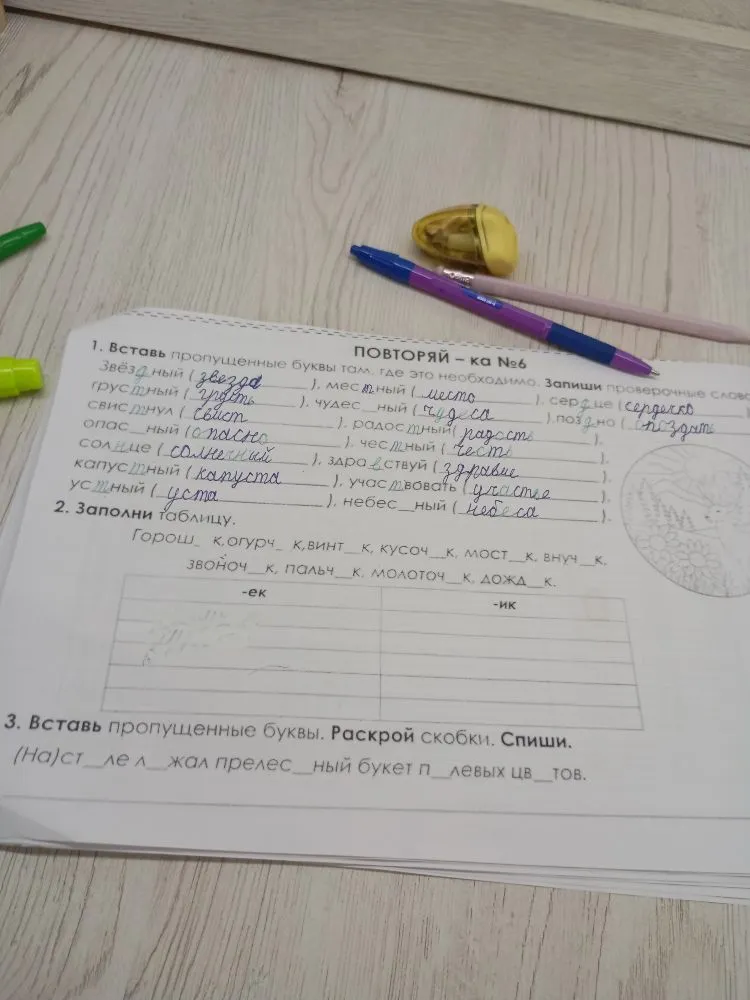 ПОВТОРЯЙ – ка №6
1. Вставь пропущенные буквы там, где это необходимо. Запиши проверочные слова
Звёздный (звезда), местный (место), сердце (сердечко)
грустный (грусть), чудес__ный (чудеса), поздно (опоздать)
свистнул (свист), радостный (радость),
опас__ный (опасно), честный (честь),
солнце (солнечный), здравствуй (здравие),
капустный (капуста), участвовать (участие),
устный (уста), небес__ный (небеса).
2. Заполни таблицу.
Горош_ к, огурч_ к, винт__к, кусоч__к, мост__к, внуч__к,
звоноч__к, пальч__к, молоточ__к, дожд__к.
-ек -ик
3. Вставь пропущенные буквы. Раскрой скобки. Спиши.
(На)ст__ле л__жал прелес__ный букет п__левых цв__тов.